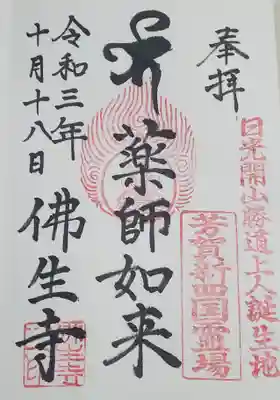 奉拝
日光開山勝道上人誕生地
芳賀新四国霊場
薬師如来
令和三年
十月十八日
佛生寺